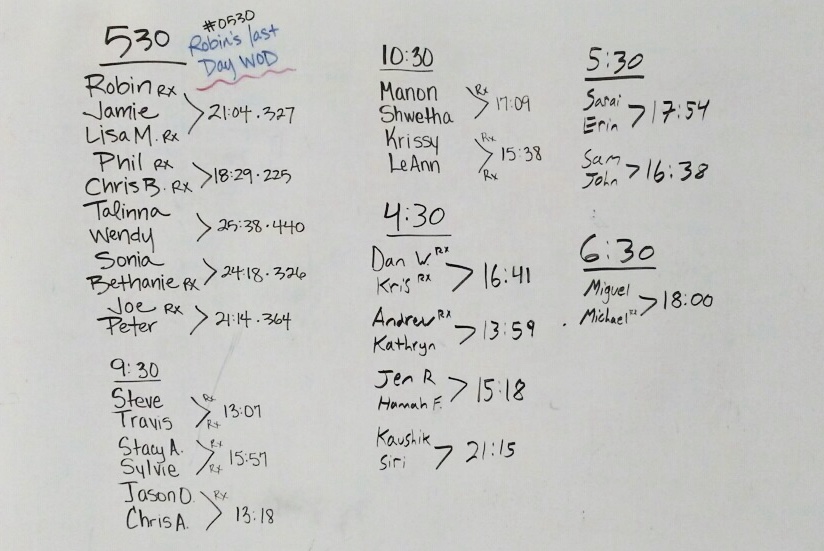 530
#0530
Robin's last
Day WOD
Robin Rx
Jamie
Lisa M. Rx
21:04 · 327
Phil Rx
Chris B. Rx
18:29 · 225
Talinna
Wendy
25:38 · 440
Sonia
Bethanie Rx
24:18 · 326
Joe Rx
Peter
21:14 · 364
9:30
Steve Rx
Travis Rx
13:07
Stacy A. Rx
Sylvie Rx
15:57
Jason O. Rx
Chris A.
13:18
10:30
Manon Rx
Shwetha
17:09
Krissy Rx
LeAnn Rx
15:38
4:30
Dan W. Rx
Kris Rx
16:41
Andrew Rx
Kathryn
13:59
Jen R
Hannah F.
15:18
Kaushik
Siri
21:15
5:30
Sarai
Erin
17:54
Sam
John
16:38
6:30
Miguel
Michael Rx
18:00